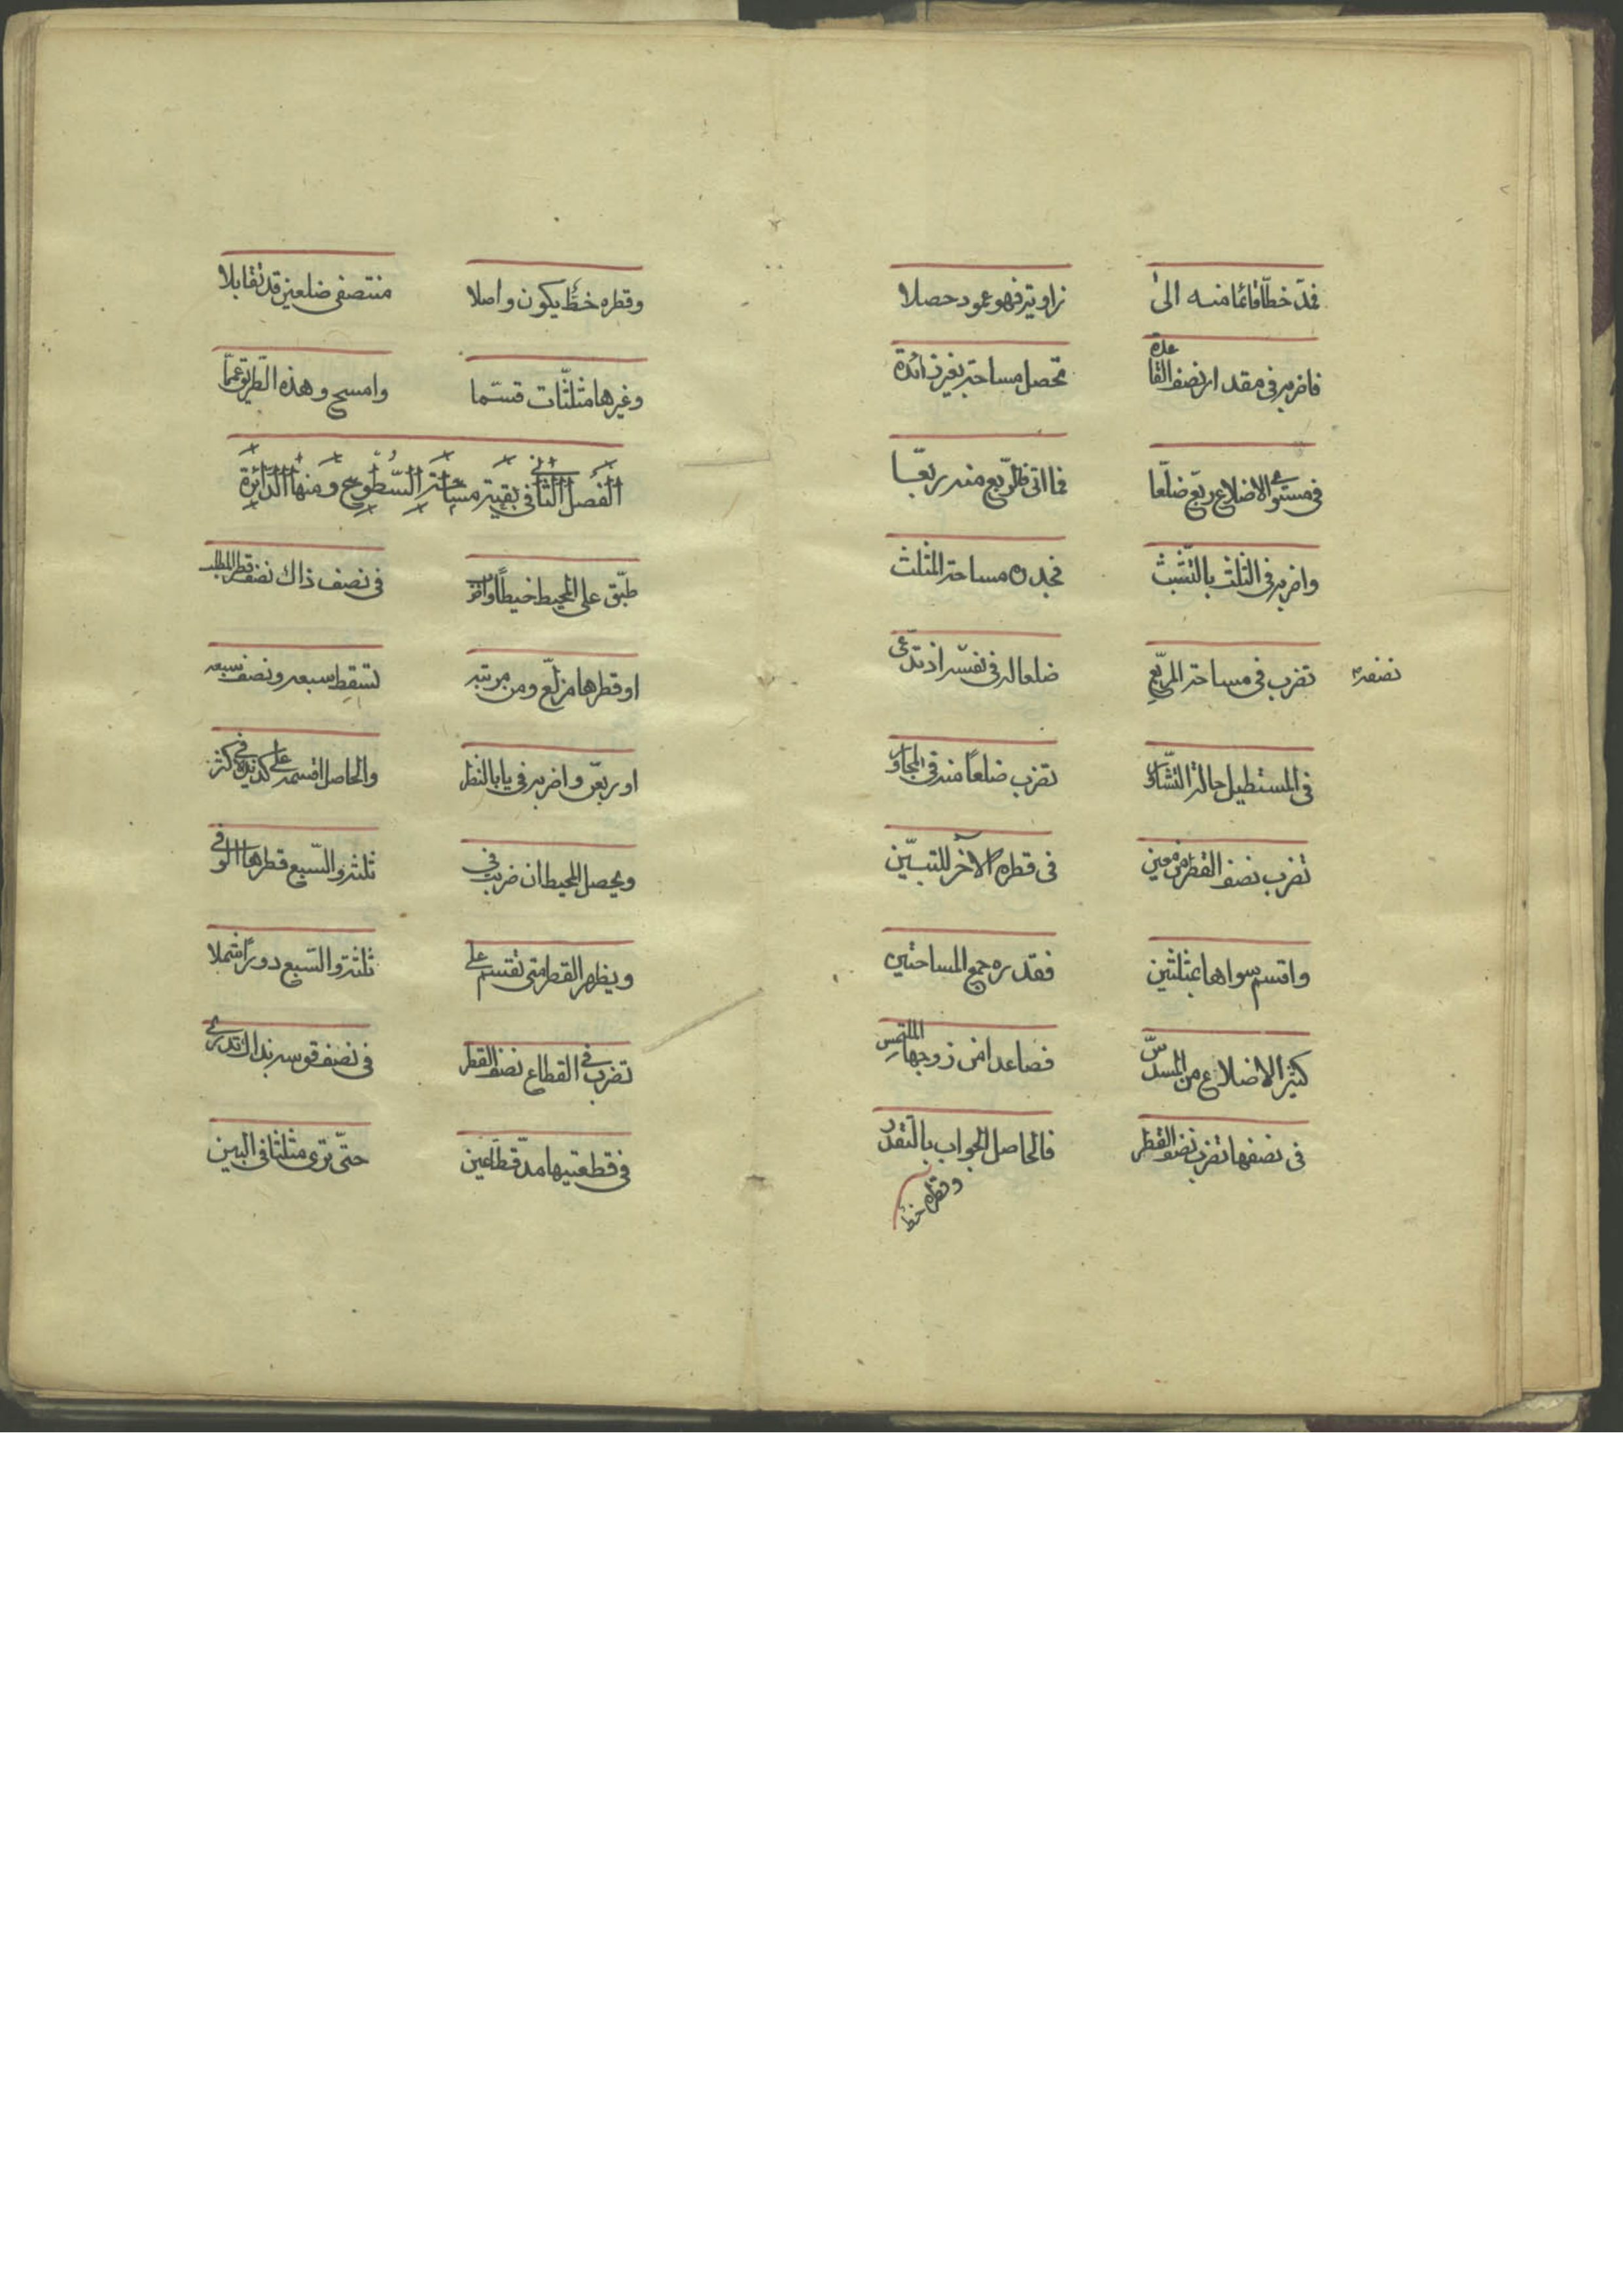 فمد خطا قائما منه الى زاويته فهو عمود حصلا
فاضربه فى مقدار نصف القاعده تحصل مساحته بغير زائدة
فى مستوى الاضلاع ربّع ضلعا فما اتى فالرّبع منه ربّعا
واضربه فى الثلث بالتشبث فجذره مساحة المثلث
نضفه
تضرب فى مساحة المربّع ضلعا له فى نفسه اذ تدّعى
فى المستطيل حالة التشاور تضرب ضلعًا منه فى المجاور
تضرب نصف القطر من معين فى قطره الآخر للتبيّن
واقسم سواها بمثلثين فقدره جمع المساحتين
كثير الاضلاع من المسدّس فصاعدا من زوجها الملتمس
فى نصفها تضرب نصف القطر فالحاصل الجواب بالتقدر
وقطره خط
وقطره خطٌّ يكون واصلا منتصفى ضلعين قد تقابلا
وغيرها مثلثات قسّما وامسح وهذه الطريق عمّا
الفصل الثانى فى بقية مساحة السّطوح ومنها الدّائرة
طبّق على المحيط خيطًا واضرب فى نصف ذاك نصف قطر المطلب
او قطرها مربّع ومن مرتبه تسقط سبعه ونصف سبعه
او ربعّن واضربه فى يا بالنظر والحاصل اقسمه على كثر
ويحصل المحيط ان ضربت فى ثلثة والسّبع قطرها الوفى
ويظهر القطر متى تقسم على ثلثة والسّبع دورًا شملا
تضرب فى القطاع نصف القطر فى نصف قوسه بذاك تدرى
فى قطعتيها مدّ قطاعين حتّى ترى مثلثا فى البين